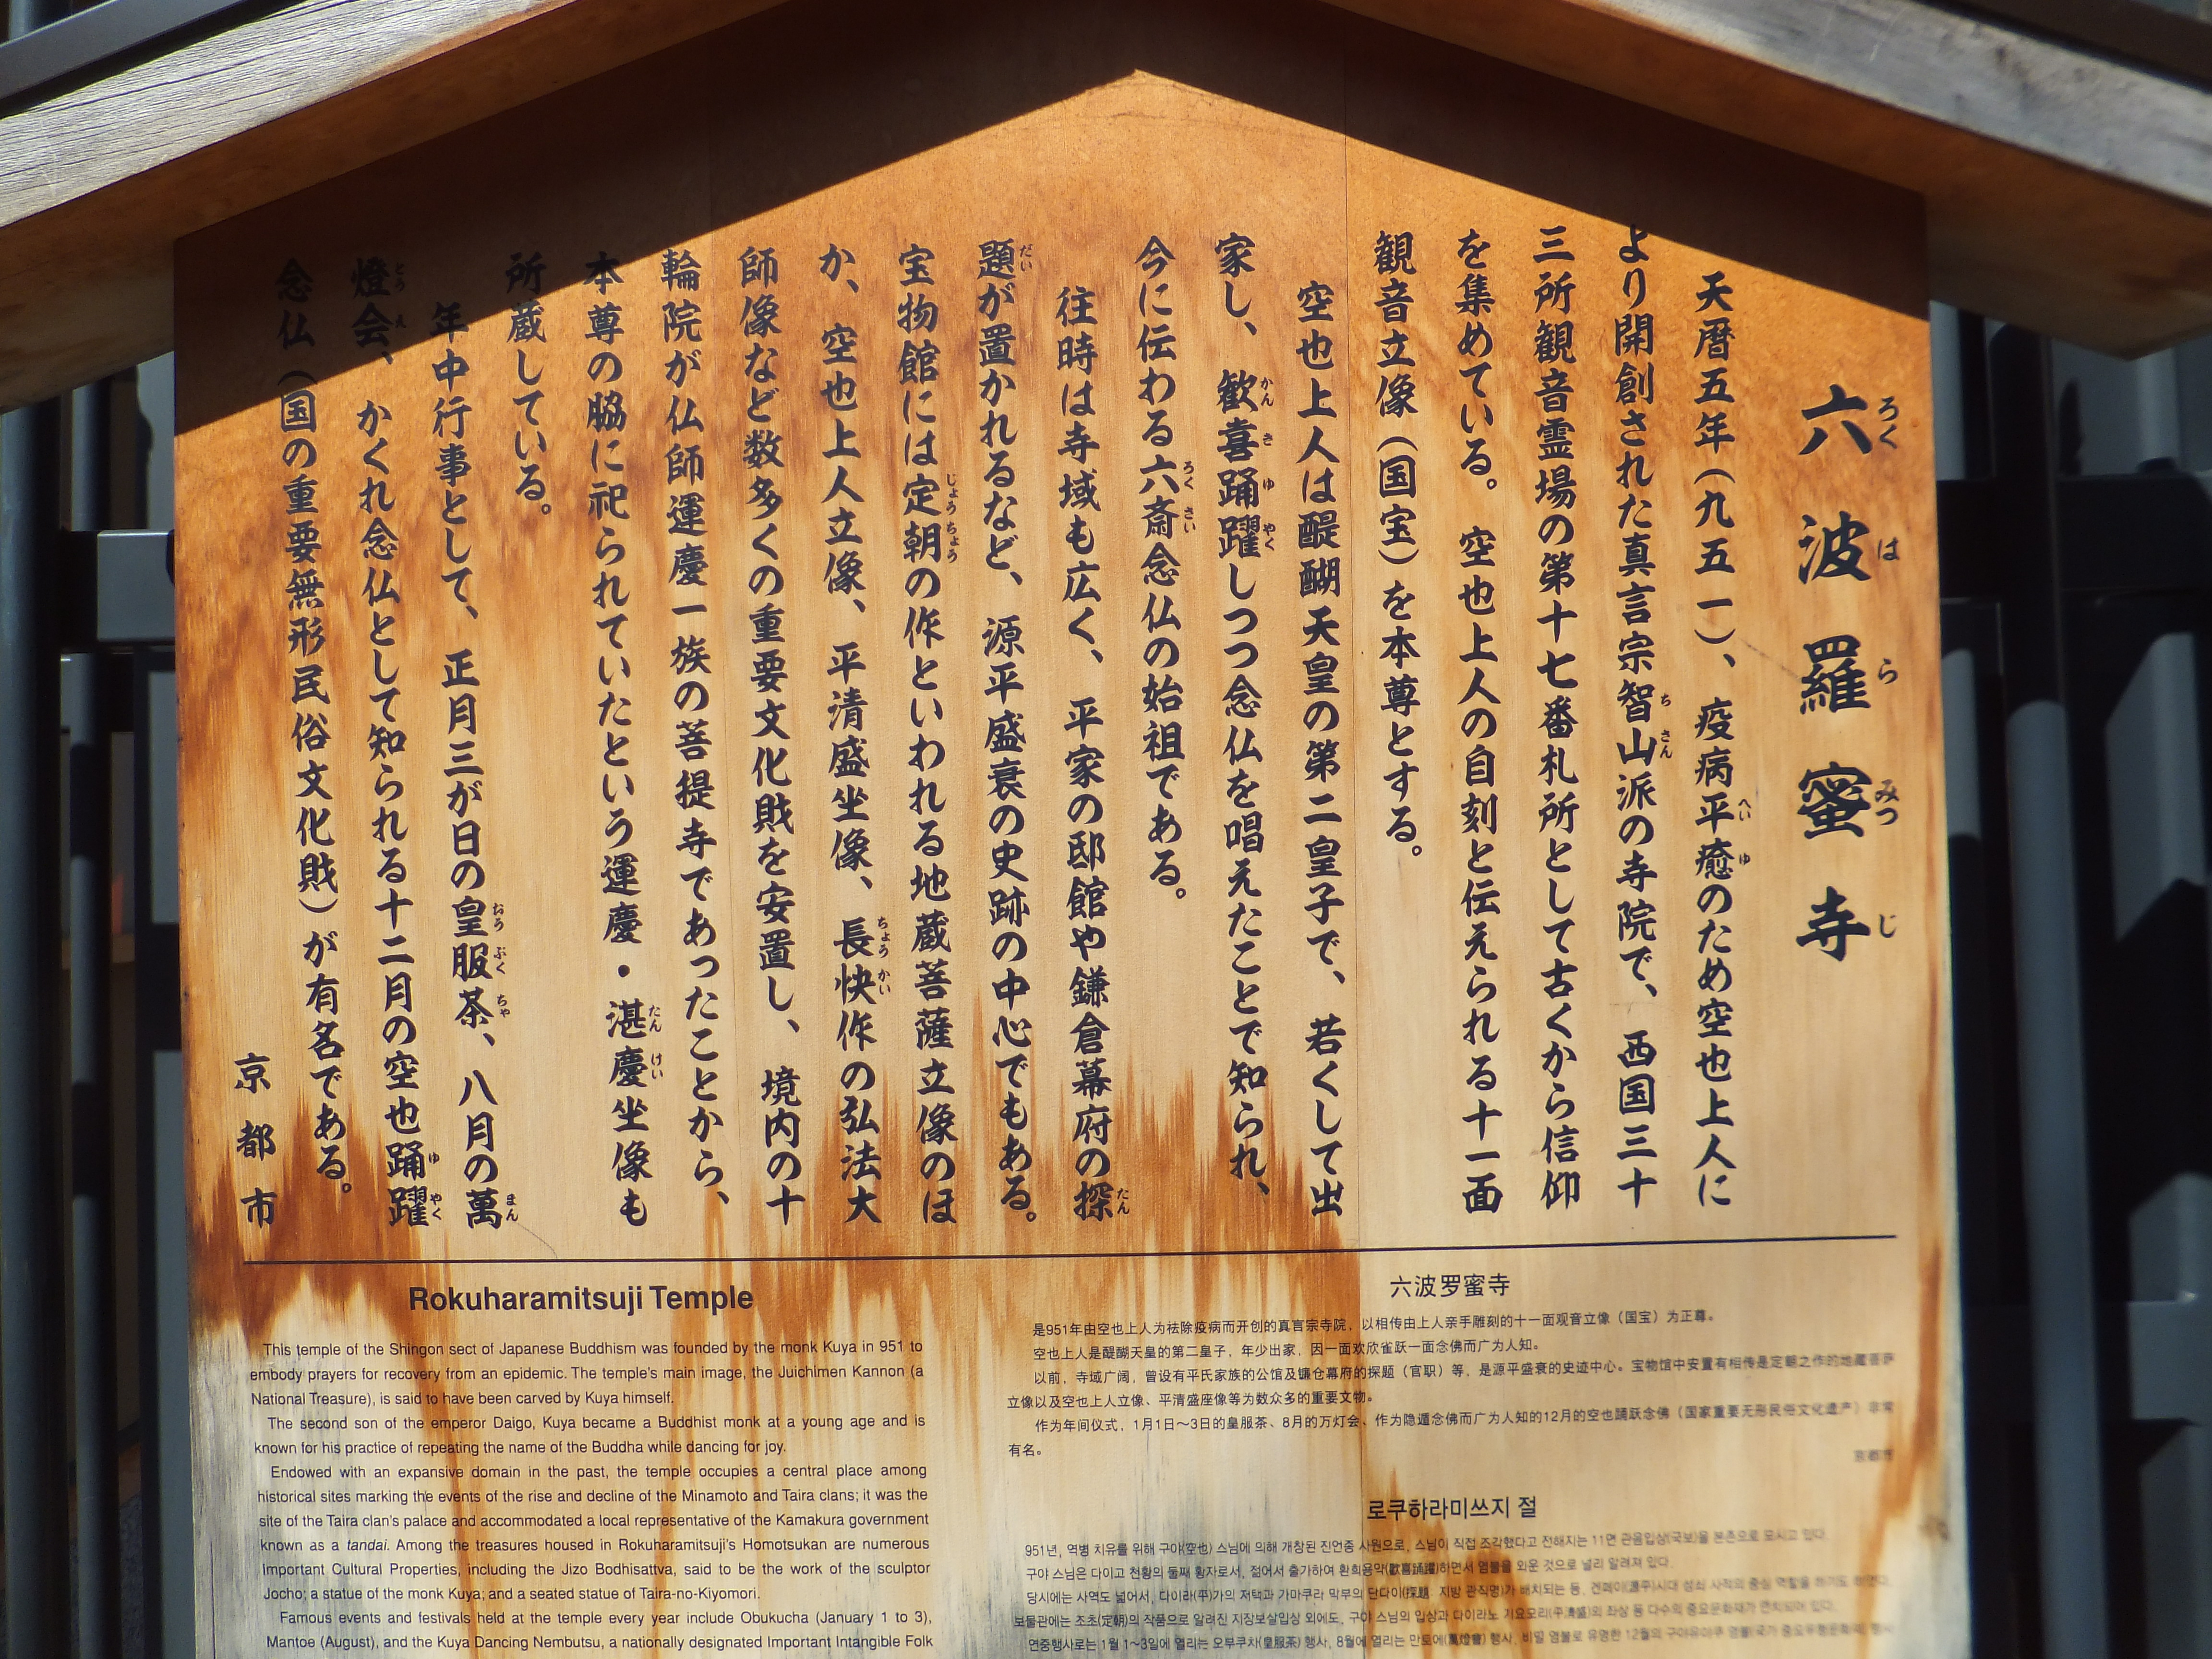 六波羅蜜寺
ろく は ら みつ じ
天暦五年（九五一）、疫病平癒のため空也上人に
より開創された真言宗智山派の寺院で、西国三十
三所観音霊場の第十七番札所として古くから信仰
を集めている。空也上人の自刻と伝えられる十一面
観音立像（国宝）を本尊とする。
空也上人は醍醐天皇の第二皇子で、若くして出
家し、歓喜踊躍しつつ念仏を唱えたことで知られ、
今に伝わる六斎念仏の始祖である。
往時は寺域も広く、平家の邸館や鎌倉幕府の探
題が置かれるなど、源平盛衰の史跡の中心でもある。
宝物館には定朝の作といわれる地蔵菩薩立像のほ
か、空也上人立像、平清盛坐像、長快作の弘法大
師像など数多くの重要文化財を安置し、境内の十
輪院が仏師運慶一族の菩提寺であったことから、
本尊の脇に祀られていたという運慶・湛慶坐像も
所蔵している。
年中行事として、正月三が日の皇服茶、八月の萬
燈会、かくれ念仏として知られる十二月の空也踊躍
念仏（国の重要無形民俗文化財）が有名である。
京都市
Rokuharamitsuji Temple
This temple of the Shingon sect of Japanese Buddhism was founded by the monk Kuya in 951 to
embody prayers for recovery from an epidemic. The temple's main image, the Juichimen Kannon (a
National Treasure), is said to have been carved by Kuya himself.
The second son of the emperor Daigo, Kuya became a Buddhist monk at a young age and is
known for his practice of repeating the name of the Buddha while dancing for joy.
Endowed with an expansive domain in the past, the temple occupies a central place among
historical sites marking the events of the rise and decline of the Minamoto and Taira clans; it was the
site of the Taira clan's palace and accommodated a local representative of the Kamakura government
known as a tandai. Among the treasures housed in Rokuharamitsuji's Homotsukan are numerous
Important Cultural Properties, including the Jizo Bodhisattva, said to be the work of the sculptor
Jocho; a statue of the monk Kuya; and a seated statue of Taira-no-Kiyomori.
Famous events and festivals held at the temple every year include Obukucha (January 1 to 3),
Mantoe (August), and the Kuya Dancing Nembutsu, a nationally designated Important Intangible Folk
六波罗蜜寺
是951年由空也上人为祛除疫病而开创的真言宗寺院，以相传由上人亲手雕刻的十一面观音立像（国宝）为正尊。
空也上人是醍醐天皇的第二皇子，年少出家，因一面欢欣雀跃一面念佛而广为人知。
以前，寺域广阔，曾设有平氏家族的公馆及镰仓幕府的探题（官职）等，是源平盛衰的史迹中心。宝物馆中安置有相传是定朝之作的地藏菩萨
立像以及空也上人立像、平清盛座像等为数众多的重要文物。
作为年间仪式，1月1日～3日的皇服茶、8月的万灯会、作为隐遁念佛而广为人知的12月的空也踊跃念佛（国家重要无形民俗文化遗产）非常
有名。
京都市
로쿠하라미쓰지 절
951년, 역병 치유를 위해 구야(空也) 스님에 의해 개창된 진언종 사원으로, 스님이 직접 조각했다고 전해지는 11면 관음입상(국보)을 본존으로 모시고 있다.
구야 스님은 다이고 천황의 둘째 황자로서, 젊어서 출가하여 환희용약(歡喜踊躍)하면서 염불을 외운 것으로 널리 알려져 있다.
당시에는 사역도 넓어서, 다이라(平)가의 저택과 가마쿠라 막부의 단다이(探題: 지방 관직명)가 배치되는 등, 겐페이(源平)시대 성쇠 사적의 중심 역할을 하기도 하였다.
보물관에는 조초(定朝)의 작품으로 알려진 지장보살입상 외에도, 구야 스님의 입상과 다이라노 기요모리(平清盛)의 좌상 등 다수의 중요문화재가 안치되어 있다.
연중행사로는 1월 1～3일에 열리는 오부쿠차(皇服茶) 행사, 8월에 열리는 만토에(萬燈會) 행사, 비밀 염불로 유명한 12월의 구야유야쿠 염불